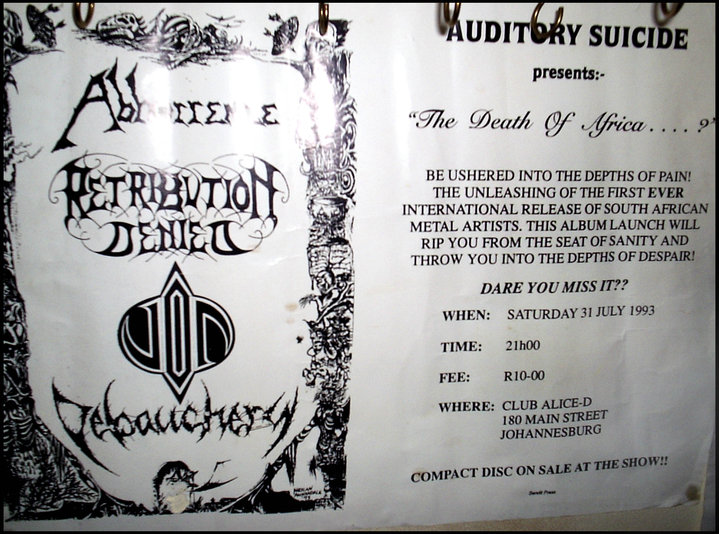 Abhorrence
RETRIBUTION
DENIED
Debauchery
AUDITORY SUICIDE
presents:-
"The Death Of Africa . . . . ?"
BE USHERED INTO THE DEPTHS OF PAIN!
THE UNLEASHING OF THE FIRST EVER
INTERNATIONAL RELEASE OF SOUTH AFRICAN
METAL ARTISTS. THIS ALBUM LAUNCH WILL
RIP YOU FROM THE SEAT OF SANITY AND
THROW YOU INTO THE DEPTHS OF DESPAIR!
DARE YOU MISS IT??
WHEN: SATURDAY 31 JULY 1993
TIME: 21h00
FEE: R10-00
WHERE: CLUB ALICE-D
180 MAIN STREET
JOHANNESBURG
COMPACT DISC ON SALE AT THE SHOW!!